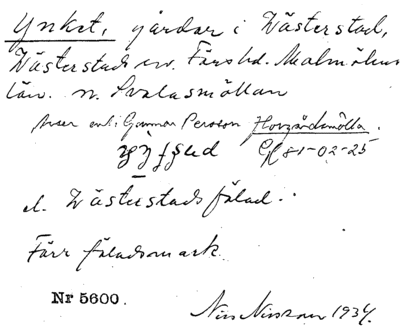 Ynket, gårdar i Västerstad,
Västerstads sn. Färs hd. Malmöhus
län. n. Svalasmöllan
enl. Gunnar Persson Hovgårdsmölla.
81-02-25
d. Västerstads fälad.
Förr fäladsmark.
Nr 5600.
Nils Nilsson 1934.